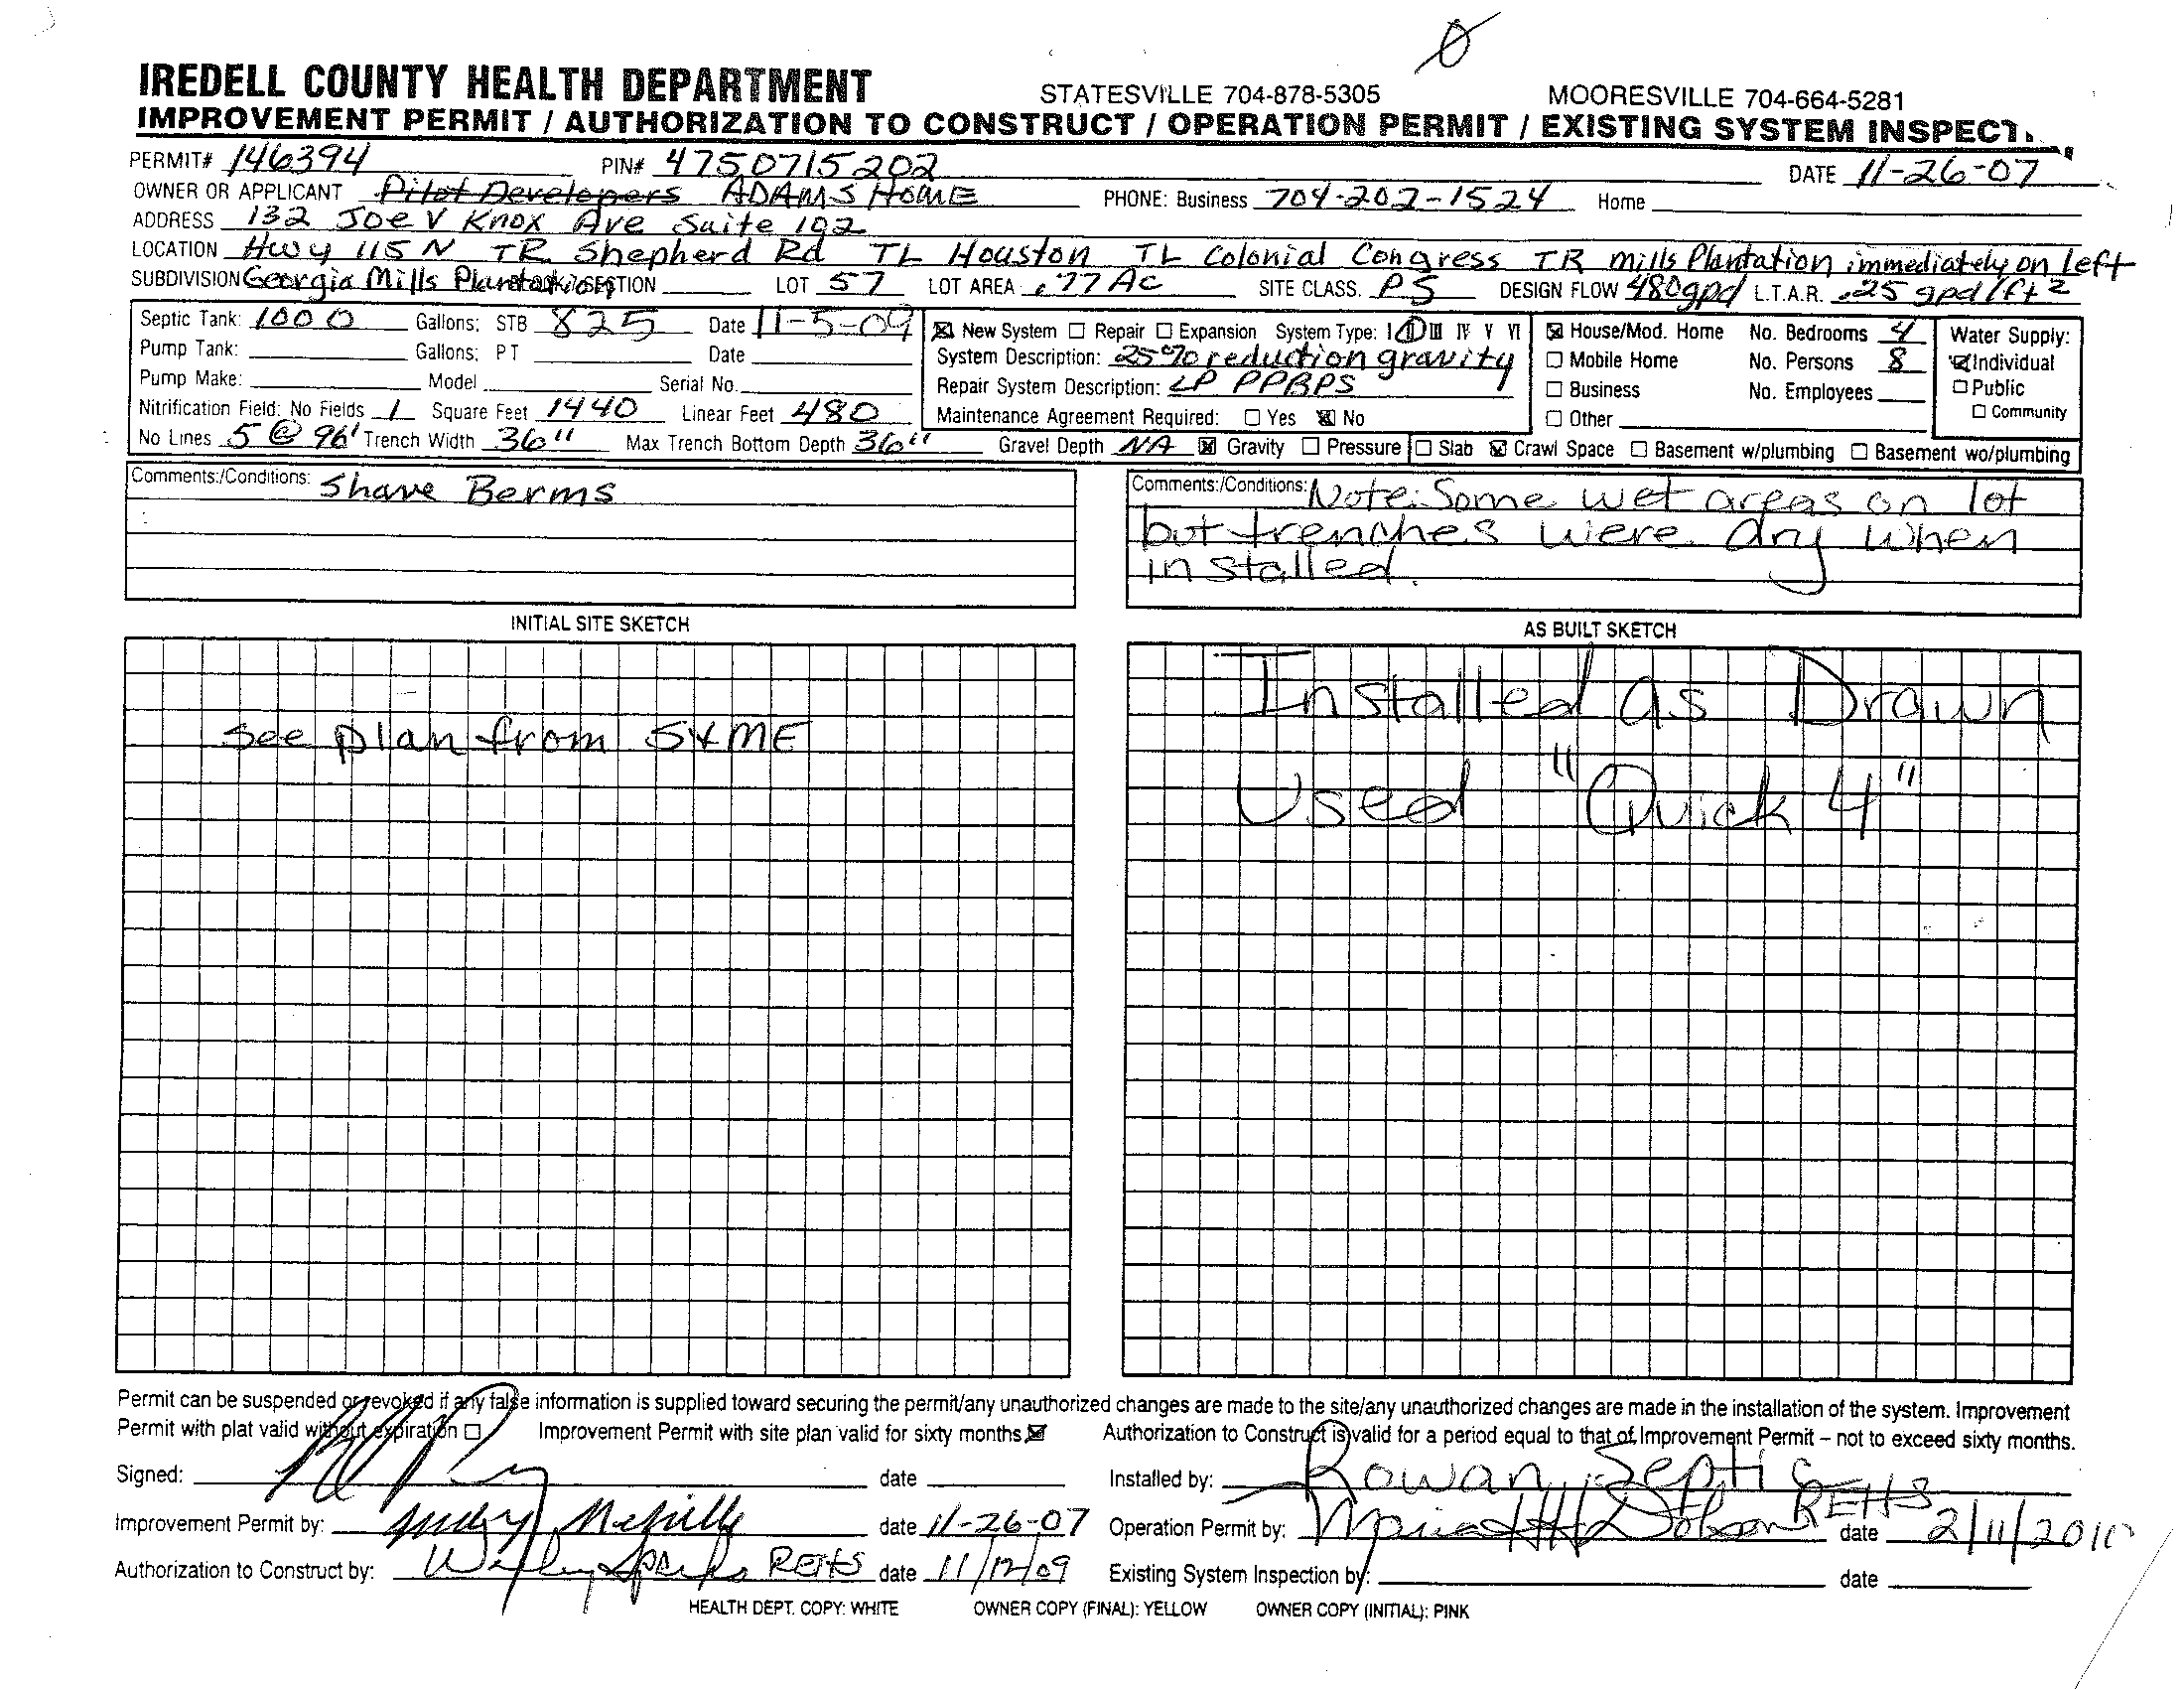 IREDELL COUNTY HEALTH DEPARTMENT STATESVILLE 704-878-5305 MOORESVILLE 704-664-5281
IMPROVEMENT PERMIT / AUTHORIZATION TO CONSTRUCT / OPERATION PERMIT / EXISTING SYSTEM INSPECT
PERMIT# 146394 PIN# 4750715202 DATE 11-26-07
OWNER OR APPLICANT Pilot Developers ADAMS HOME PHONE: Business 704-202-1524 Home
ADDRESS 132 Joe V Knox Ave Suite 102
LOCATION Hwy 115 N TR Shepherd Rd TL Houston TL Colonial Congress TR Mills Plantation immediately on left
SUBDIVISION Georgia Mills Plantation SECTION LOT 57 LOT AREA .77 AC SITE CLASS. PS DESIGN FLOW 480gpd L.T.A.R. .25 gpd/ft2
Septic Tank: 1000 Gallons: STB 825 Date 11-5-09 ☒ New System ☐ Repair ☐ Expansion System Type: I II III IV V VI ☒ House/Mod. Home No. Bedrooms 4 Water Supply:
Pump Tank: Gallons: PT Date System Description: 25% reduction gravity ☐ Mobile Home No. Persons 8 ☒ Individual
Pump Make: Model Serial No. Repair System Description: LP PPBPS ☐ Business No. Employees ☐ Public
Nitrification Field: No Fields 1 Square Feet 1440 Linear Feet 480 Maintenance Agreement Required: ☐ Yes ☒ No ☐ Other ☐ Community
No Lines 5 @ 96' Trench Width 36" Max Trench Bottom Depth 36" Gravel Depth NA ☒ Gravity ☐ Pressure ☐ Slab ☒ Crawl Space ☐ Basement w/plumbing ☐ Basement wo/plumbing
Comments:/Conditions: Shave Berms
Comments:/Conditions: Note: Some wet areas on lot
but trenches were dry when
installed.
INITIAL SITE SKETCH
See plan from S&ME
AS BUILT SKETCH
Installed as Drawn
Used "Quick 4"
Permit can be suspended or revoked if any false information is supplied toward securing the permit/any unauthorized changes are made to the site/any unauthorized changes are made in the installation of the system. Improvement
Permit with plat valid without expiration ☐ Improvement Permit with site plan valid for sixty months ☒ Authorization to Construct is valid for a period equal to that of Improvement Permit – not to exceed sixty months.
Signed: date Installed by: Rowan Septic
Improvement Permit by: date 11-26-07 Operation Permit by: REHS date
Authorization to Construct by: REHS date 11/12/09 Existing System Inspection by: date
HEALTH DEPT. COPY: WHITE OWNER COPY (FINAL): YELLOW OWNER COPY (INITIAL): PINK